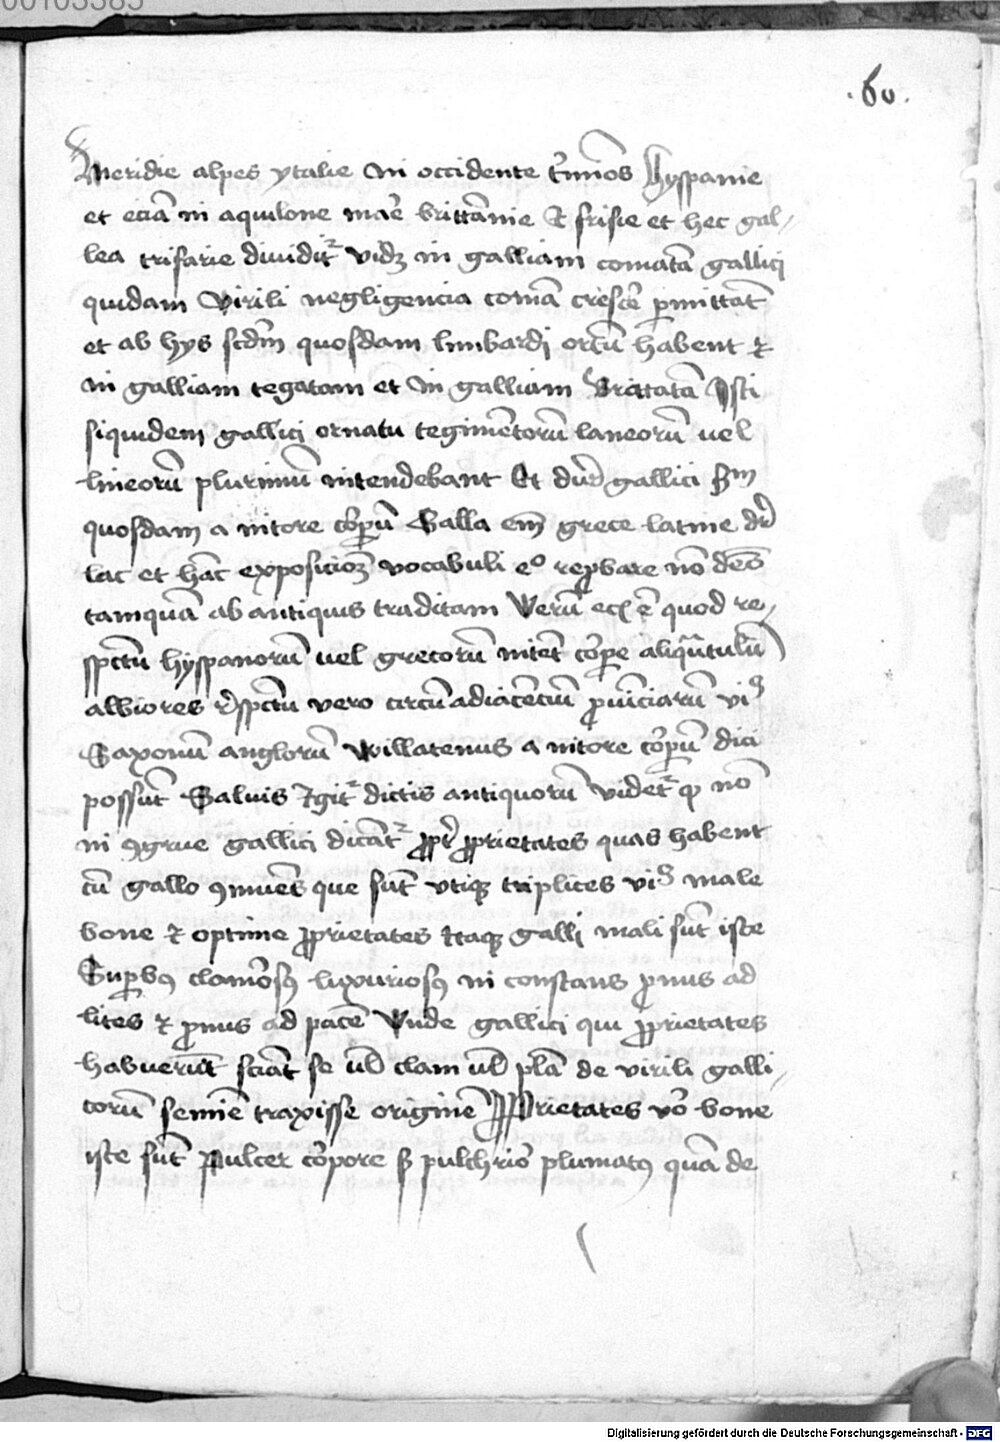 00103385
.60.
Meridie alpes ytalie In occidente t'mĩos Hyspanie
et eciã in aquilone mar̃e brittãnie Et frisie et hec gal-
lea trifarie diuidit᷑ vidꝫ in galliam comatã gallici
quidam virili negligencia comã cresce᷑ ꝑmittãt
et ab hys scd̃m quosdam limbardi ortũ habent ⁊
in galliam togatam et In galliam Isti
siquidem gallici ornatu tegimẽtorũ laneorũ uel
lineorũ plurimũ intendebant Et gallici
quosdam a nitore corpũ Galla em̃ grece latine dr̃
lac et hãc exposicioꝫ vocabuli eº reprobare nõ
tamquã ab antiquis traditam Verũ ẽ quod re-
spectũ hyspanorũ uel grecorũ nitẽt corpe aliqũtulũ
albiores respectũ vero circũadiacẽciũ ꝓuinciarũ
Saxonũ anglorũ a nitore corpũ dici
possũt Saluis Igit᷑ dictis antiquorũ videt᷑ ꝙ nõ
in ꝯgrue gallici dicãt᷑ ꝓpt̃ ꝓprietates quas habent
cũ gallo ꝯmunes que sũt vtiqꝫ triplices male
bone ⁊ optime ꝓprietates Itaqꝫ galli mali sũt iste
Suꝑbꝰ clamosꝰ luxuriosꝰ in constans pronus ad
lites ⁊ pronus ad pacẽ Vnde gallici qui ꝓprietates
habuerũt sciãt se ul̃ clam ul̃ plã de virili galli-
corũ semĩe traxisse originẽ Proprietates vº bone
iste sũt Pulcer corpore ß pulchrior plumatꝰ quã de
Digitalisierung gefördert durch die Deutsche Forschungsgemeinschaft - DFG